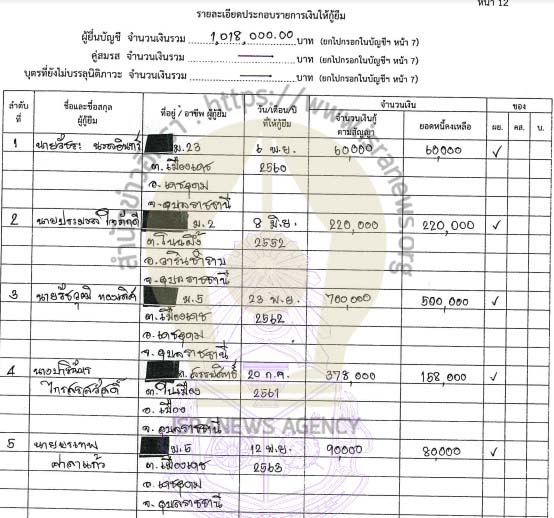 หน้า 12
รายละเอียดประกอบรายการเงินให้กู้ยืม
ผู้ยื่นบัญชี จำนวนเงินรวม 1,018,000.00 บาท (ยกไปกรอกในบัญชีฯ หน้า 7)
คู่สมรส จำนวนเงินรวม บาท (ยกไปกรอกในบัญชีฯ หน้า 7)
บุตรที่ยังไม่บรรลุนิติภาวะ จำนวนเงินรวม บาท (ยกไปกรอกในบัญชีฯ หน้า 7)
ลำดับที่ ชื่อและชื่อสกุล ผู้กู้ยืม ที่อยู่ / อาชีพ ผู้กู้ยืม วัน/เดือน/ปี ที่ให้กู้ยืม จำนวนเงิน ของ
จำนวนเงินกู้ ตามสัญญา ยอดหนี้คงเหลือ ผย. คส. บ.
1 ม.23 6 พ.ย. 60000 60,000 ✓
ต.เมืองเดช 2560
อ.เดชอุดม
จ.อุบลราชธานี
2 ม.2 8 มิ.ย. 220,000 220,000 ✓
ต.โนนผึ้ง 2552
อ.วารินชำราบ
จ.อุบลราชธานี
3 ม.5 23 พ.ย. 700,000 500,000 ✓
ต.เมืองเดช 2562
อ.เดชอุดม
จ.อุบลราชธานี
4 ถ.สรรพสิทธิ์ 20 ก.ค. 378,000 158,000 ✓
ไกรสรสวัสดิ์ ต.ในเมือง 2561
อ.เมือง
จ.อุบลราชธานี
5 นายพรเทพ ม.5 12 พ.ย. 90000 80,000 ✓
ศาลาแก้ว ต.เมืองเดช 2563
อ.เดชอุดม
จ.อุบลราชธานี
สำนักข่าวอิศรา : https://www.isranews.org
ISRANEWS AGENCY